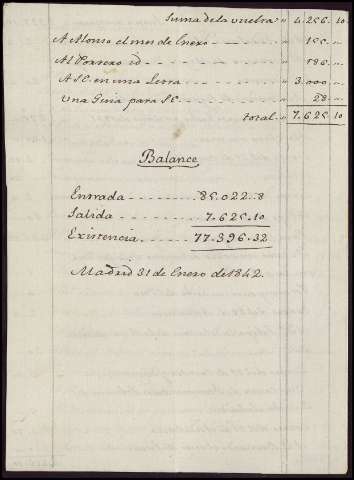 Suma de la vuelta " 4.256. 10.
A Alonso el mes de Enero - - - - - " 155. "..
Al Portero id - - - - - - - - " 186. "..
A S.E. en una Letra - - - - - " 3.000 "..
Una Guia para S.E. - - - - - " 28. "..
total.. " 7.625. 10
Balance
Entrada - - - - - - - 85.022..8
Salida - - - - - - - 7.625.10
Existencia. - - - - 77.396.32
Madrid 31 de Enero de 1842.